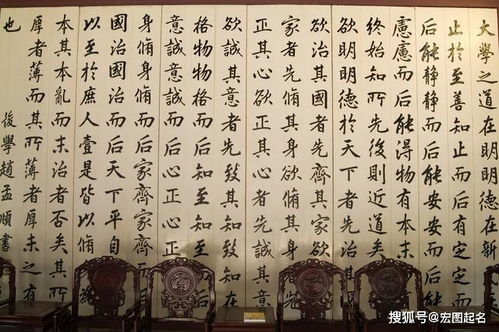 大學之道在明明德在新民
止於至善知止而后有定
后能靜靜而后能安安而后能
慮慮而后能得物有本末
終始知所先後則近道矣
欲明明德於天下者先
家者先脩其身欲
正其心欲正其心者先
欲誠其意者先致其知致知在
格物物格而后知至
意誠意誠而后心正心正
身脩身脩而后家齊家
國治國治而后天下平自
以至於庶人壹是皆以脩
本其本亂而末治者否矣其所
厚者薄而其所薄者厚未之有
也
後學趙孟頫書
搜狐号@宏图起名